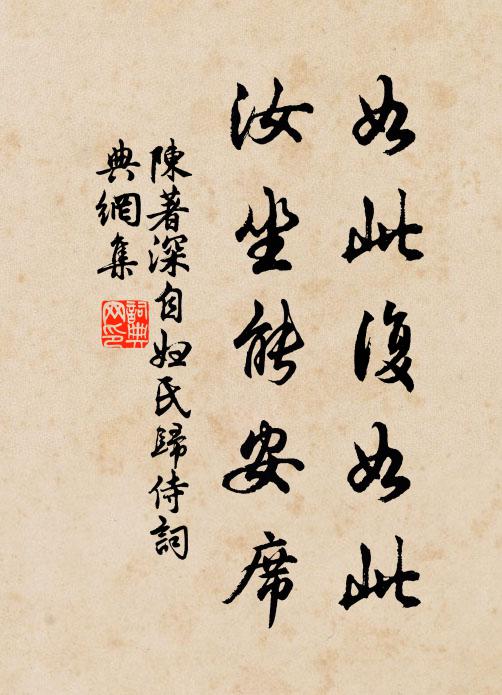 如此復如此
汝坐能安席
陳著深自妲氏歸侍詞
典網集
詞典網印